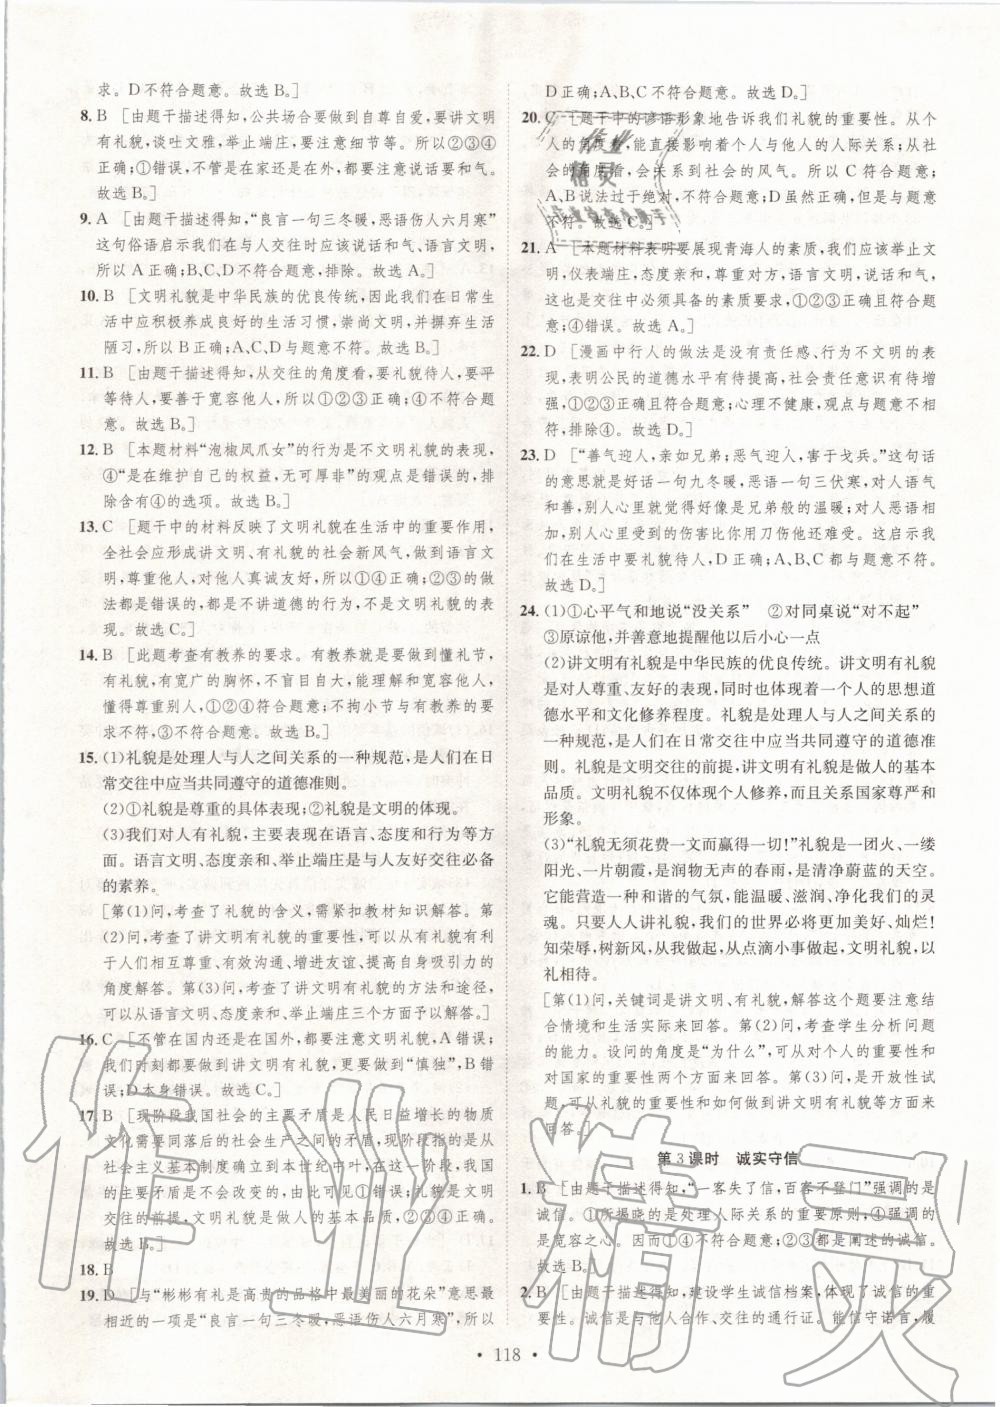 求。D不符合题意。故选B。]
8. B [由题干描述得知,公共场合要做到自尊自爱,要讲文明
有礼貌,谈吐文雅,举止端庄,要注意细节等。所以②③④
正确;①错误,不管是在家还是在外,都要注意说话要和气。
故选B。]
9. A [由题干描述得知,“良言一句三冬暖,恶语伤人六月寒”
这句俗语启示我们在与人交往时应该说话和气,语言文明,
所以A正确;B、C、D不符合题意,排除。故选A。]
10. B [文明礼貌是中华民族的优良传统,因此我们在日常生
活中应积极养成良好的生活习惯,崇尚文明,并摒弃生活
陋习,所以B正确;A、C、D与题意不符。故选B。]
11. B [由题干描述得知,从交往的角度看,要礼貌待人,要平
等待人,要善于宽容他人,所以①②③正确;④不符合题
意。故选B。]
12. B [本题材料“泡椒凤爪女”的行为是不文明礼貌的表现,
④“是在维护自己的权益,无可厚非”的观点是错误的,排
除含有④的选项。故选B。]
13. C [题干中的材料反映了文明礼貌在生活中的重要作用,
全社会应形成讲文明、有礼貌的社会新风气,做到语言文
明,尊重他人,对他人真诚友好,所以①④正确;②③的做
法都是错误的,都是不讲道德的行为,不是文明礼貌的表
现。故选C。]
14. B [此题考查有教养的要求。有教养的人,懂得礼节,有
礼貌,有宽广的胸怀,不盲目自大,能理解和宽容他人,
懂得尊重别人,①②④符合题意;不拘小节与有教养的要
求不符,③不符合题意。故选B。]
15. (1)礼貌是处理人与人之间关系的一种规范,是人们在日
常交往中应当共同遵守的道德准则。
(2)①礼貌是尊重的具体表现;②礼貌是文明的体现。
(3)我们对人有礼貌,主要表现在语言、态度和行为等方
面。语言文明、态度亲和、举止端庄是与人友好交往必备
的素养。
[第(1)问,考查了礼貌的含义,需紧扣教材知识解答。第
(2)问,考查了讲文明有礼貌的重要性,可以从有礼貌有利
于人们相互尊重、有效沟通、增进友谊、提高自身吸引力的
角度解答。第(3)问,考查了讲文明有礼貌的方法和途径,
可以从语言文明、态度亲和、举止端庄三个方面予以解答。]
16. C [不管在国内还是在国外,都要注意文明礼貌,A错误;
我们时刻都要做到讲文明有礼貌,更要做到“慎独”,B错
误;D本身错误。故选C。]
17. B [现阶段我国社会的主要矛盾是人民日益增长的物质
文化需要同落后的社会生产之间的矛盾,现阶段指的是
从社会主义基本制度确立到本世纪中叶,在这一阶段,我国
的主要矛盾是不会改变的,由此可见①错误;礼貌是文明
交往的前提,文明礼貌是做人的基本品质,②③④正确。
故选B。]
18. B
19. D [与“彬彬有礼是高贵的品格中最美丽的花朵”意思最
相近的一项是“良言一句三冬暖,恶语伤人六月寒”,所以
D正确;A、B、C不符合题意。故选D。]
20. C [题干中的谚语形象地告诉我们礼貌的重要性。从个
人的角度看,能直接影响着个人与他人的人际关系;从社
会的角度看,会关系到社会的风气。所以C符合题意;
A、B说法过于绝对,不符合题意;D虽然正确,但是与题意
不符。故选C。]
21. A [本题材料表明要展现青海人的素质,我们应该举止文
明,仪表端庄,态度亲和,尊重对方,语言文明,说话和气,
这也是交往中必须具备的素质要求,①②③正确且符合题
意;④错误。故选A。]
22. D [漫画中行人的做法是没有责任感、行为不文明的表
现,表明公民的道德水平有待提高,社会责任意识有待增
强,①②③正确且符合题意;心理不健康,观点与题意不
符,排除④。故选D。]
23. D [“善气迎人,亲如兄弟;恶气迎人,害于戈兵。”这句话
的意思就是好话一句九冬暖,恶语一句三伏寒,对人语气
和善,别人心里就觉得好像是兄弟般的温暖;对人恶语相
加,别人心里受到的伤害比你用刀伤他还难受。这启示我
们在生活中要礼貌待人,D正确;A、B、C都与题意不符。
故选D。]
24. (1)①心平气和地说“没关系” ②对同桌说“对不起”
③原谅他,并善意地提醒他以后小心一点
(2)讲文明有礼貌是中华民族的优良传统。讲文明有礼貌
是对人尊重、友好的表现,同时也体现着一个人的思想道
德水平和文化修养程度。礼貌是处理人与人之间关系的
一种规范,是人们在日常交往中应当共同遵守的道德准
则。礼貌是文明交往的前提,讲文明有礼貌是做人的基本
品质。文明礼貌不仅体现个人修养,而且关系国家尊严和
形象。
(3)“礼貌无须花费一文而赢得一切!”礼貌是一团火、一缕
阳光、一片朝霞,是润物无声的春雨,是清净蔚蓝的天空。
它能营造一种和谐的气氛,能温暖、滋润、净化我们的灵
魂。只要人人讲礼貌,我们的世界必将更加美好、灿烂!
知荣辱,树新风,从我做起,从点滴小事做起,文明礼貌,以
礼相待。
[第(1)问,关键词是讲文明、有礼貌,解答这个题要注意结
合情境和生活实际来回答。第(2)问,考查学生分析问题
的能力。设问的角度是“为什么”,可以从对个人的重要性和
对国家的重要性等方面来回答。第(3)问,是开放性试
题,可从礼貌的重要性和如何做到讲文明有礼貌等方面来
回答。]
第3课时 诚实守信
1. B [由题干描述得知,“一客失了信,百客不登门”强调的是
诚信。①所揭晓的是处理人际关系的重要原则,④强调的
是宽容之心。因而①④不符合题意;②③都是阐述的诚信。
故选B。]
2. B [由题干描述得知,建设学生诚信档案,体现了诚信的重
要性。诚信是与他人合作、交往的通行证。能信守诺言,履
• 118 •
作业精灵
作业
精灵